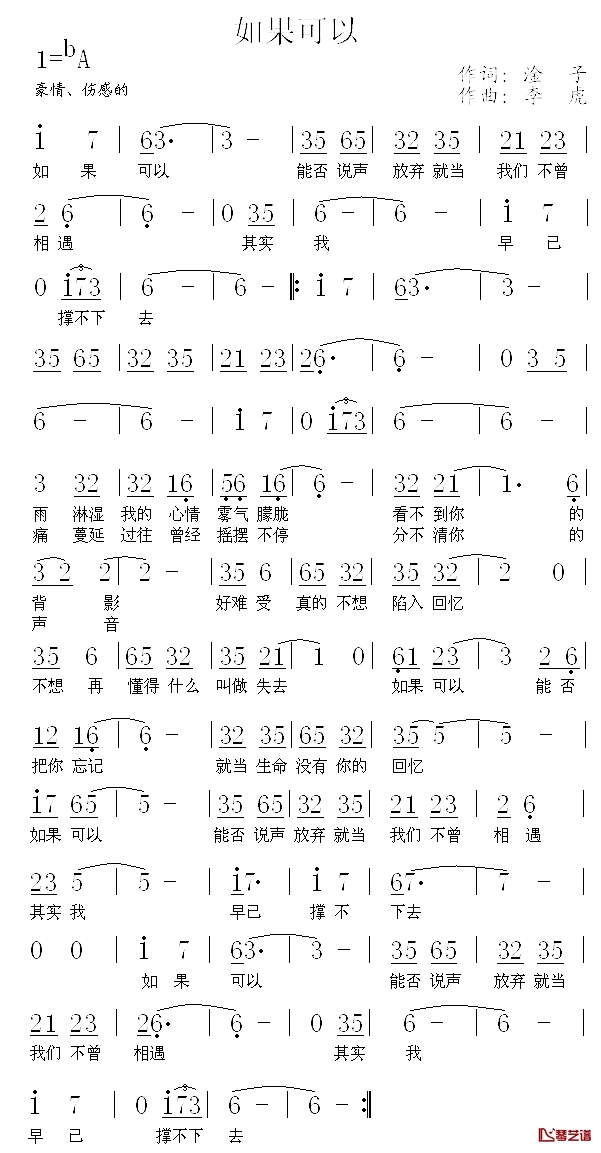 如果可以
1=bA
豪情、伤感的
作词：淦 子
作曲：李 虎
i 7 | 63· | 3 - | 35 65 | 32 35 | 21 23 |
如 果 可以 能否 说声 放弃 就当 我们 不曾
2 6 | 6 - | 0 35 | 6 - | 6 - | i 7 |
相 遇 其实 我 早 已
0 i73 | 6 - | 6 - |: i 7 | 63· | 3 - |
撑不下 去
35 65 | 32 35 | 21 23 | 26· | 6 - | 0 3 5 |
6 - | 6 - | i 7 | 0 i73 | 6 - | 6 - |
3 32 | 32 16 | 56 16 | 6 - | 32 21 | 1· 6 |
雨 淋湿 我的 心情 雾气 朦胧 看不 到你 的
痛 蔓延 过往 曾经 摇摆 不停 分不 清你 的
3 2 2 | 2 - | 35 6 | 65 32 | 35 32 | 2 0 |
背 影 好难 受 真的 不想 陷入 回忆
声 音
35 6 | 65 32 | 35 21 | 1 0 | 61 23 | 3 26 |
不想 再 懂得 什么 叫做 失去 如果 可以 能 否
12 16 | 6 - | 32 35 | 65 32 | 35 5 | 5 - |
把你 忘记 就当 生命 没有 你的 回忆
i7 65 | 5 - | 35 65 | 32 35 | 21 23 | 2 6 |
如果 可以 能否 说声 放弃 就当 我们 不曾 相 遇
23 5 | 5 - | i7· | i 7 | 67· | 7 - |
其实 我 早已 撑 不 下去
0 0 | i 7 | 63· | 3 - | 35 65 | 32 35 |
如 果 可以 能否 说声 放弃 就当
21 23 | 26· | 6 - | 0 35 | 6 - | 6 - |
我们 不曾 相遇 其实 我
i 7 | 0 i73 | 6 - | 6 - :|
早 已 撑不下 去
琴艺谱